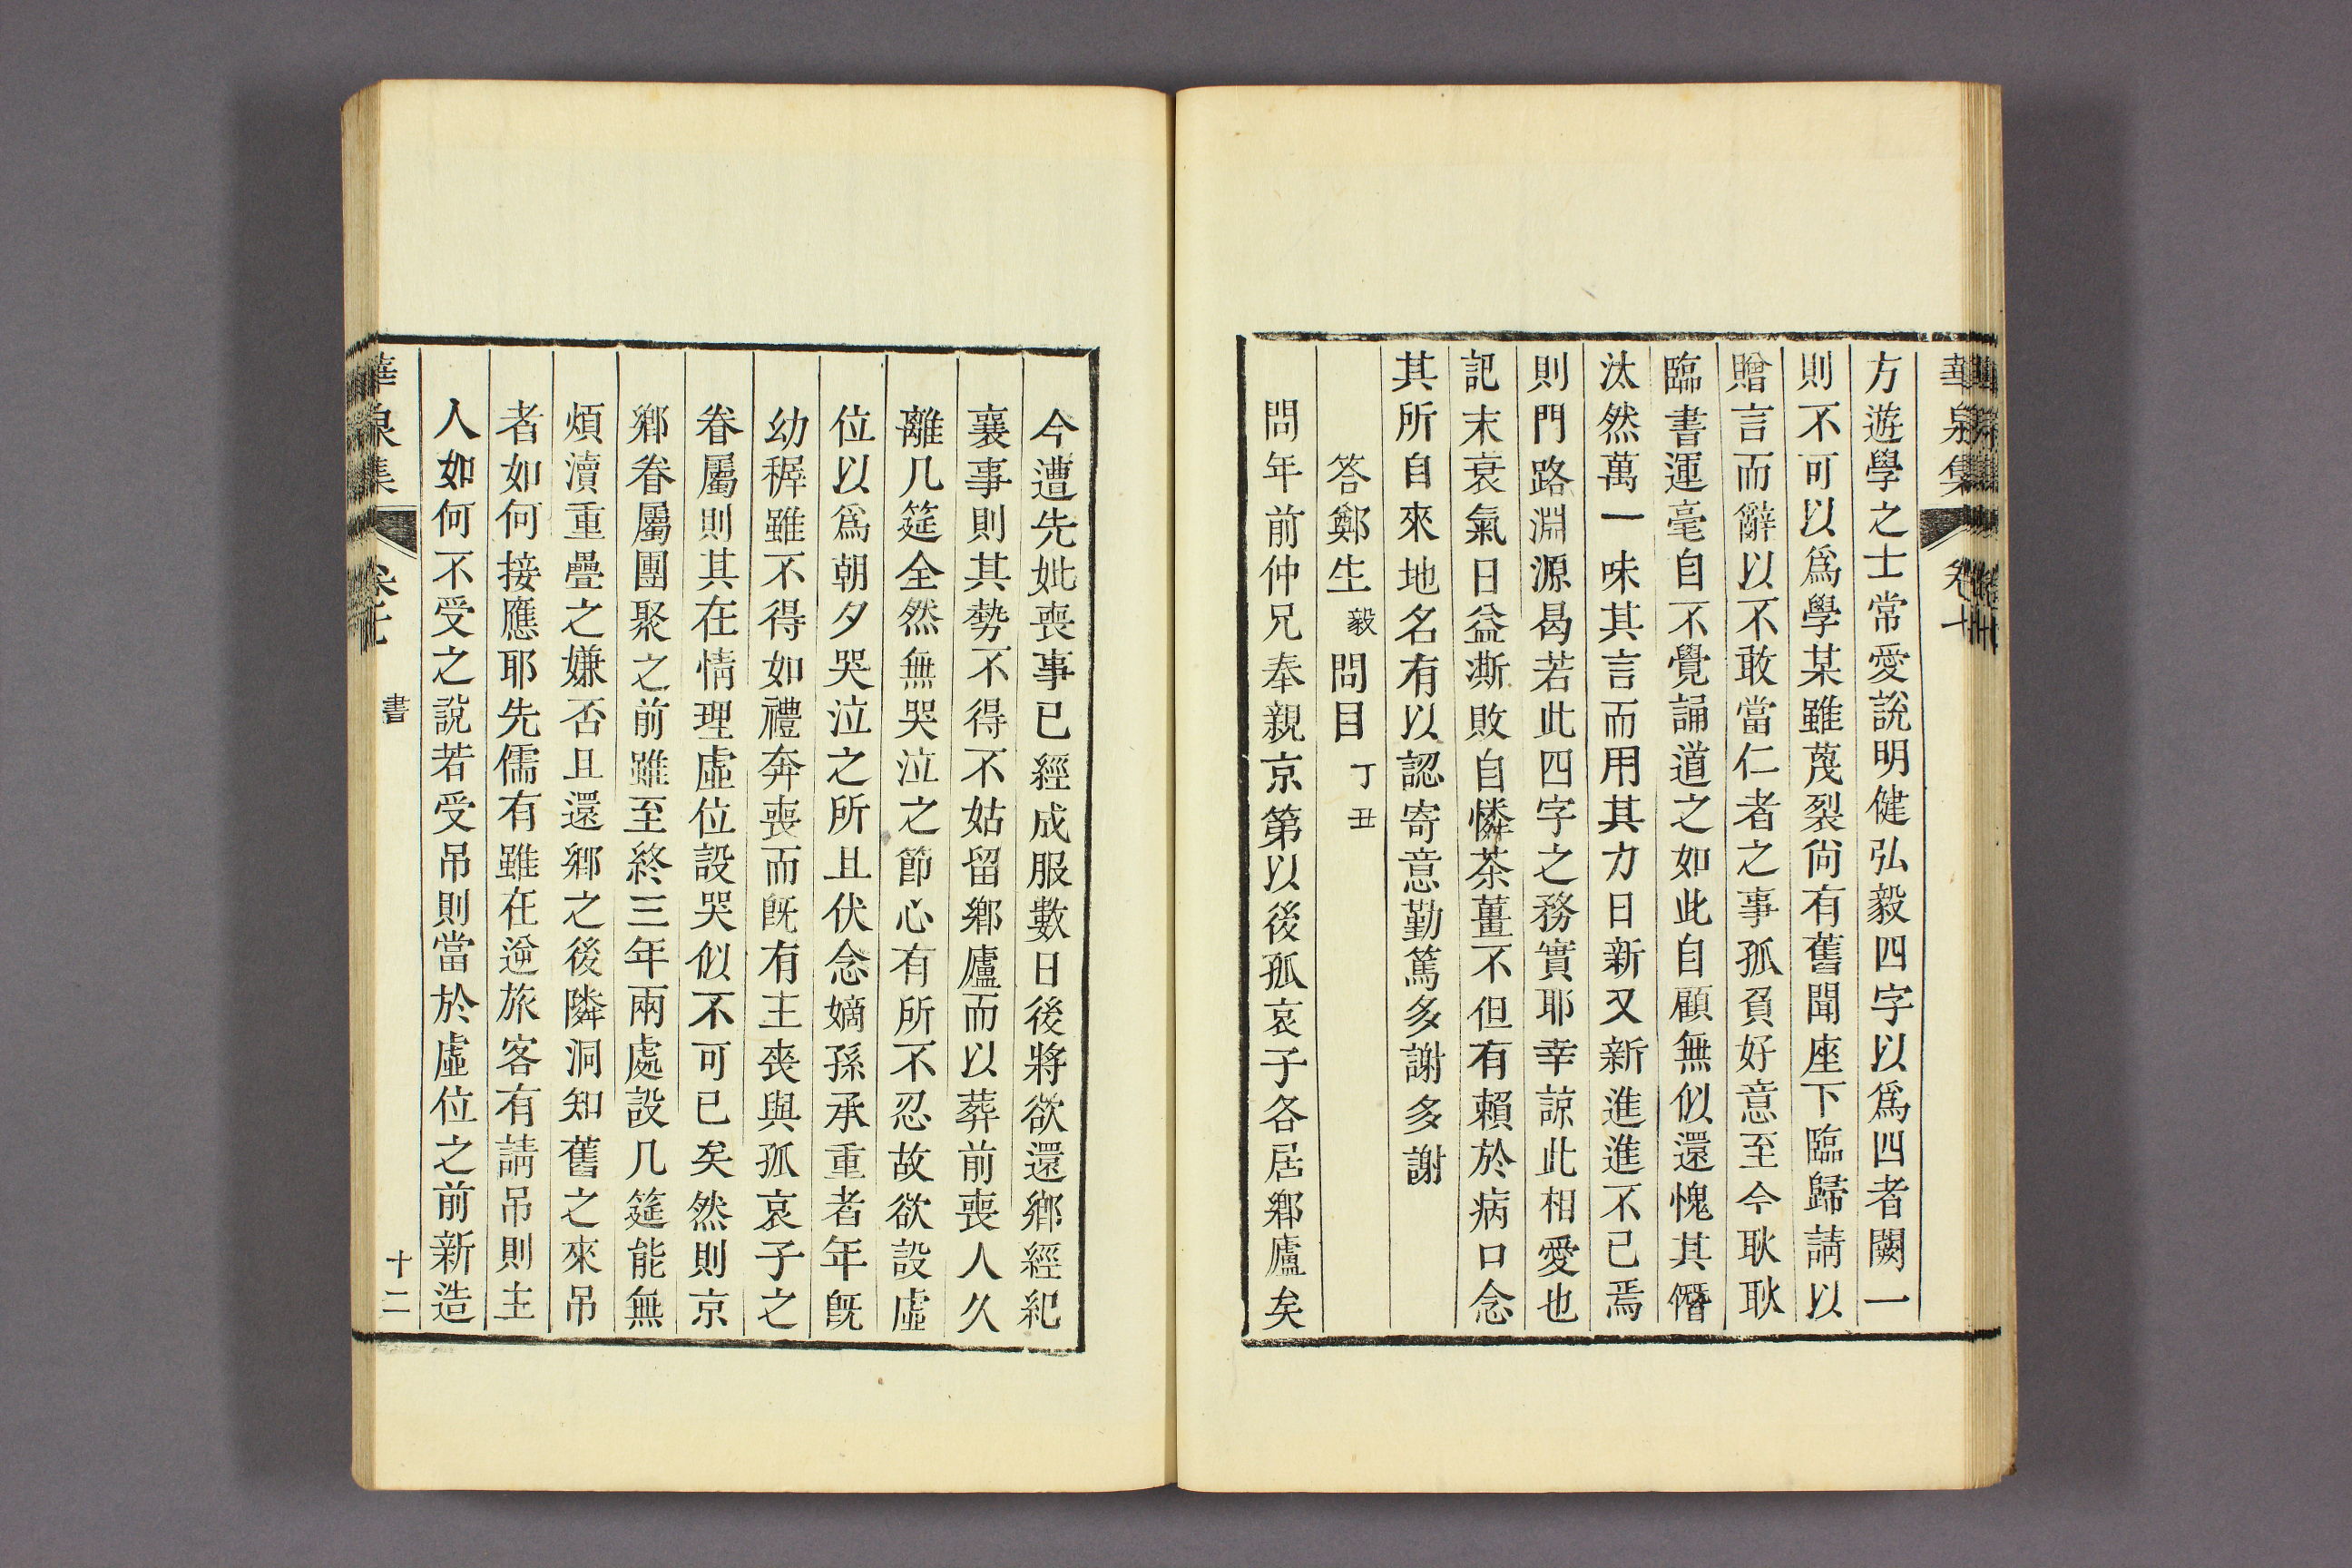 方遊學之士常愛說明健弘毅四字以爲四者闕一
則不可以爲學某雖蔑裂尙有舊聞座下臨歸請以
贈言而辭以不敢當仁者之事孤負好意至今耿耿
臨書運毫自不覺誦道之如此自顧無似還愧其僭
汰然萬一味其言而用其力日新又新進進不已焉
則門路淵源曷若此四字之務實耶幸諒此相愛也
記末衰氣日益澌敗自憐茶薑不但有賴於病口念
其所自來地名有以認寄意勤篤多謝多謝
答鄭生毅問目丁丑
問年前仲兄奉親京第以後孤哀子各居鄕廬矣
今遭先妣喪事已經成服數日後將欲還鄕經紀
襄事則其勢不得不姑留鄕廬而以葬前喪人久
離几筵全然無哭泣之節心有所不忍故欲設虛
位以爲朝夕哭泣之所且伏念嫡孫承重者年旣
幼穉雖不得如禮奔喪而旣有主喪與孤哀子之
眷屬則其在情理虛位設哭似不可已矣然則京
鄕眷屬團聚之前雖至終三年兩處設几筵能無
煩瀆重疊之嫌否且還鄕之後隣洞知舊之來吊
者如何接應耶先儒有雖在逆旅客有請吊則主
人如何不受之說若受吊則當於虛位之前新造
華泉集
書
十二